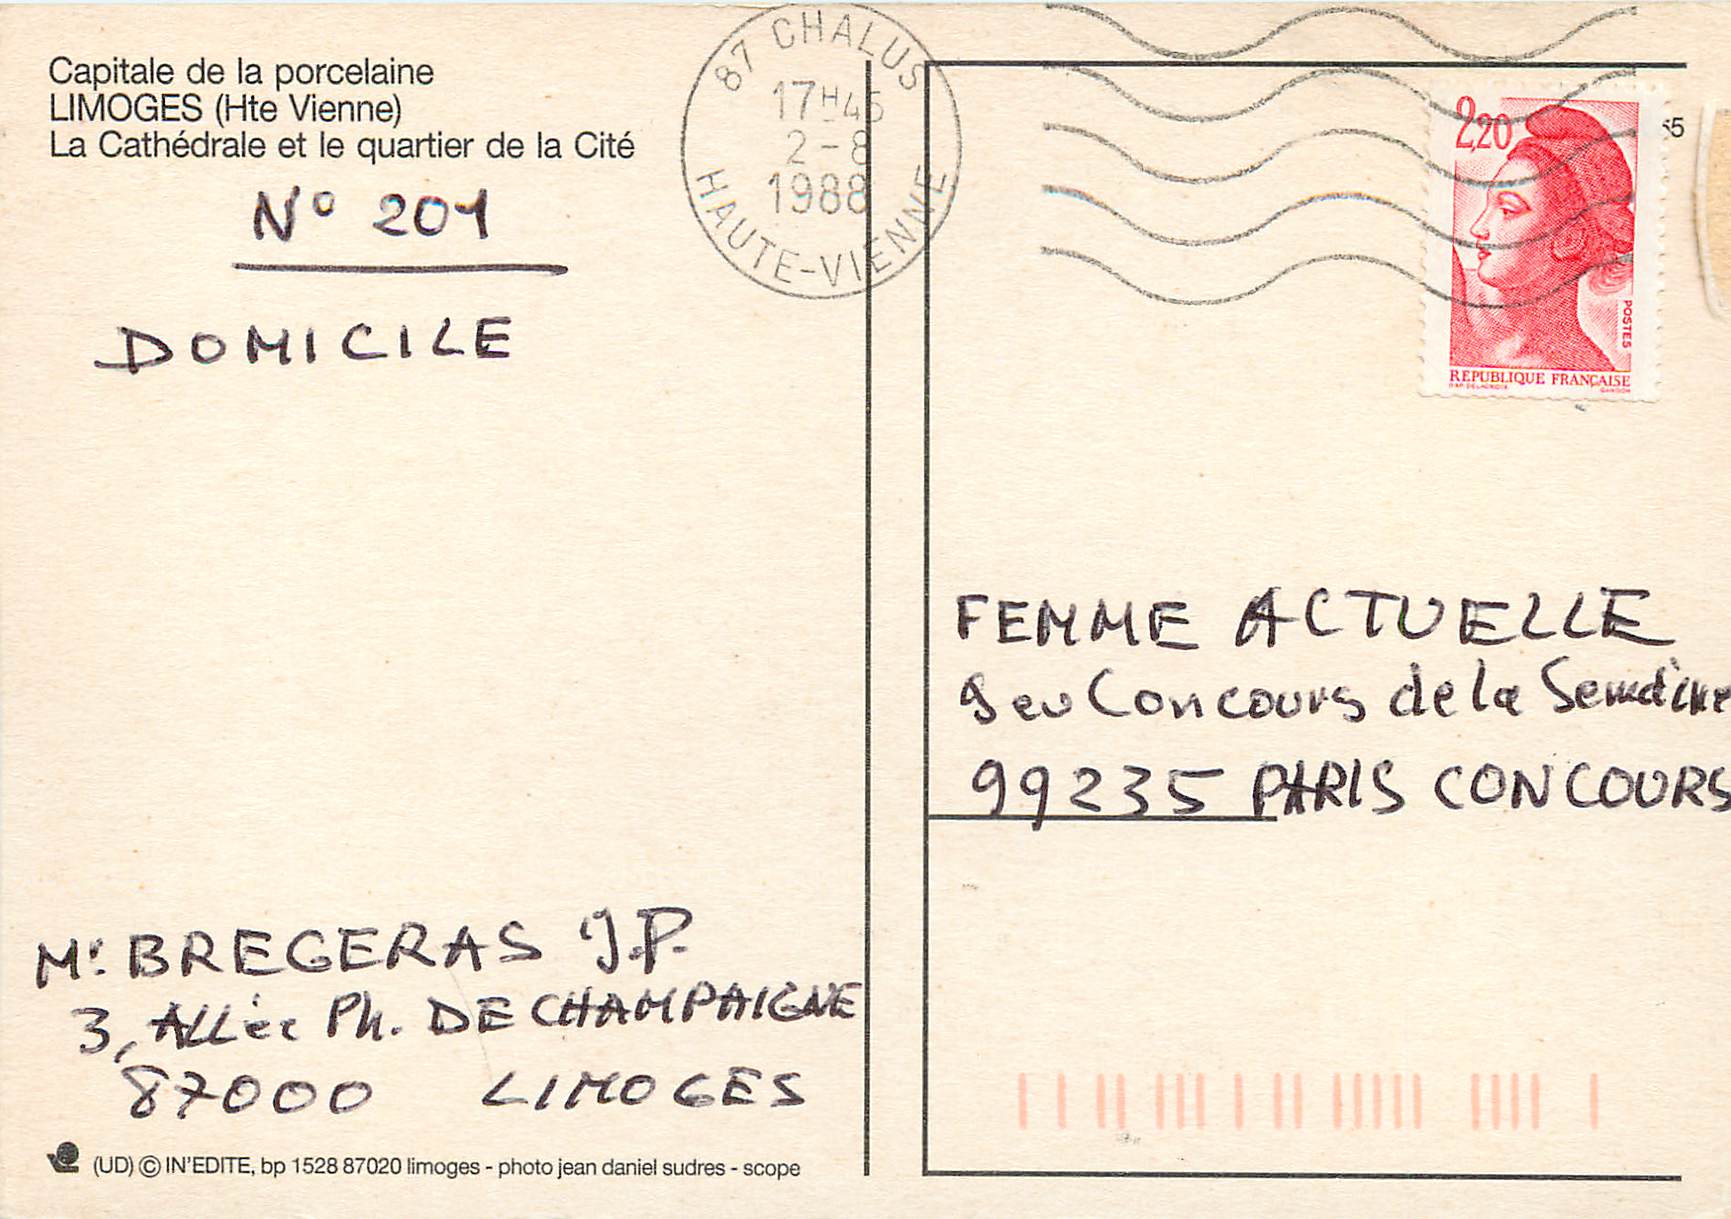 Capitale de la porcelaine
LIMOGES (Hte Vienne)
La Cathédrale et le quartier de la Cité
N° 201
DOMICILE
87 CHALUS
17H45
2-8
1988
HAUTE-VIENNE
2,20
POSTES
REPUBLIQUE FRANÇAISE
DAP. DELACROIX GANDON
55
FEMME ACTUELLE
Jeu Concours de la Semaine
99235 PARIS CONCOURS
Mr BREGERAS J.P.
3, Allée Ph. DE CHAMPAIGNE
87000 LIMOGES
(UD) © IN'EDITE, bp 1528 87020 limoges - photo jean daniel sudres - scope